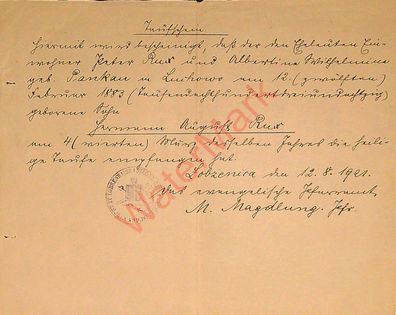 Taufschein
Hiermit wird bescheinigt, daß der den Eheleuten Ein-
wohner Peter Rux und Albertine Wilhelmine
geb. Pankau in Lukowo am 12. (zwölften)
Februar 1883 (Tausendachthundertdreiundachtzig)
geborene Sohn
Hermann August Rux
am 4 (vierten) März desselben Jahres die heili-
ge Taufe empfangen hat.
Lobzenica, den 12.8.1921.
Das evangelische Pfarramt.
M. Magdlung. Pfr.
WaterMark